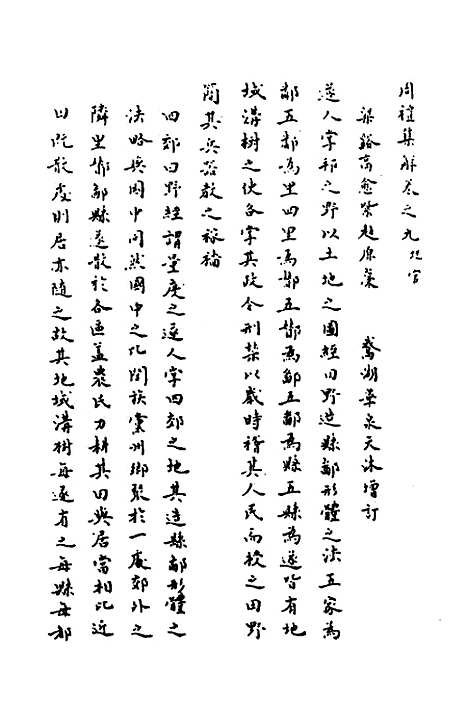 周禮集解卷之九 地官
梁谿高愈紫超原藁 鵞湖華泉天沐增訂
遂人掌邦之野以土地之圖經田野造縣鄙形體之法五家為
鄰五鄰為里四里為酇五酇為鄙五鄙為縣五縣為遂皆有地
域溝樹之使各掌其政令刑禁以歲時稽其人民而授之田野
簡其兵器教之稼穡
四郊曰野經謂量度之遂人掌四郊之地其造縣鄙形體之
法略與國中同然國中之比閭族黨州鄉聚於一處郊外之
隣里酇鄙縣遂散於各區蓋農民力耕其田與居當相比近
田既散處則居亦隨之故其地域溝樹每遂有之每縣每鄙